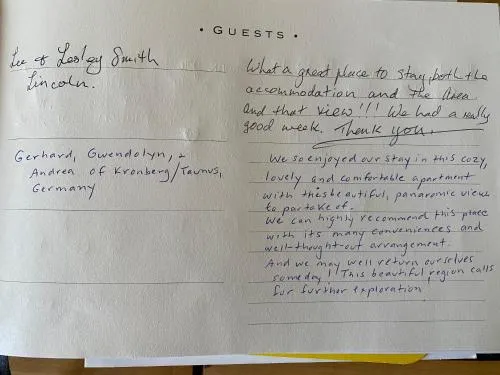 • GUESTS •
Lee & Lesley Smith
Lincoln.
What a great place to stay, both the
accommodation and the area
and that view!!! We had a really
good week. Thank you.
Gerhard, Gwendolyn, &
Andrea of Kronberg/Taunus,
Germany
We so enjoyed our stay in this cozy,
lovely and comfortable apartment
with this beautiful, panaromic view
to partake of.
We can highly recommend this place
with its many conveniences and
well-thought-out arrangement.
And we may well return ourselves
someday! This beautiful region calls
for further exploration